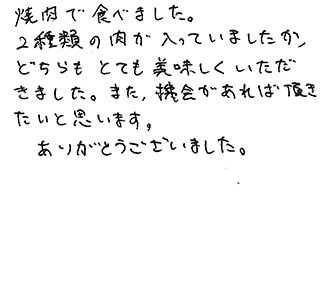 焼肉で食べました。
2種類の肉が入っていましたが、
どちらもとても美味しくいただ
きました。また、機会があれば頂き
たいと思います。
ありがとうございました。